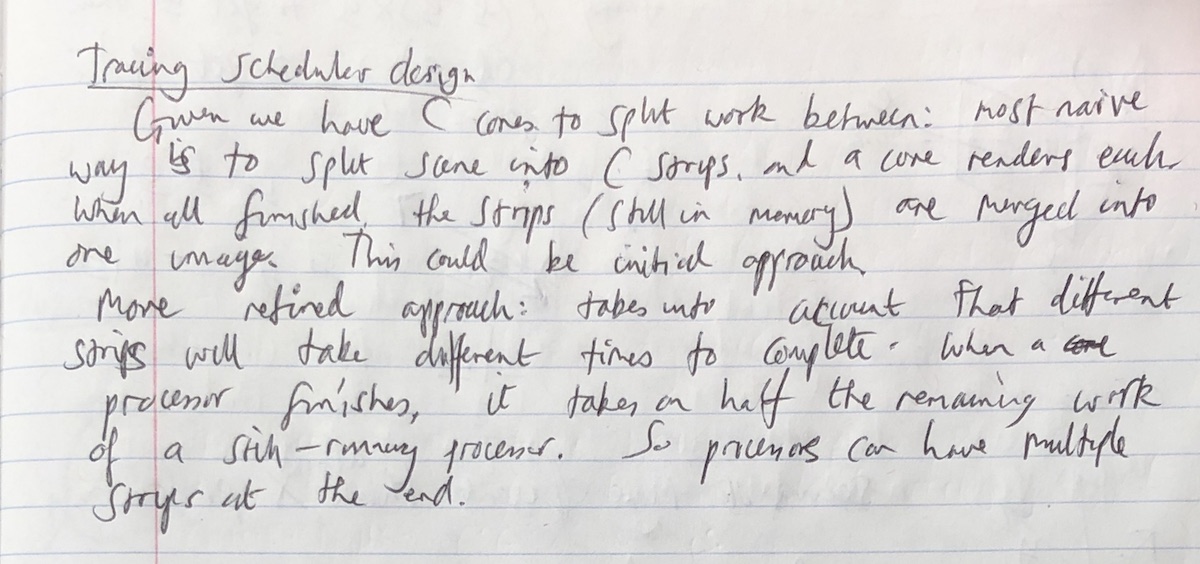 Tracing scheduler design
Given we have C cores to split work between: most naive
way is to split scene into C strips, and a core renders each.
When all finished, the strips (still in memory) are merged into
one image. This could be initial approach.
More refined approach: takes into account that different
strips will take different times to complete. When a core
processor finishes, it takes on half the remaining work
of a still-running processor. So processors can have multiple
strips at the end.